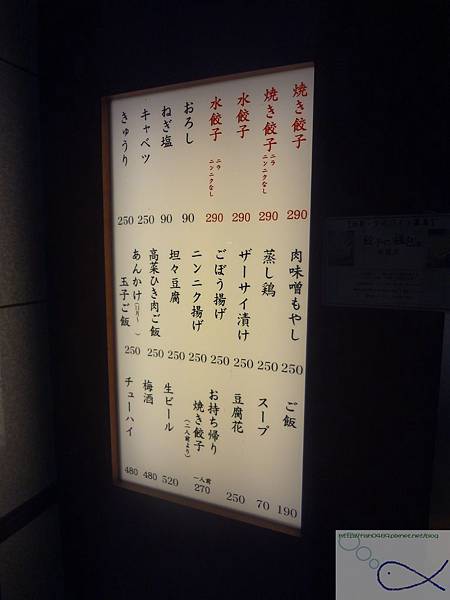 焼き餃子 290
焼き餃子 ニラニンニクなし 290
水餃子 290
水餃子 ニラニンニクなし 290
おろし 90
ねぎ塩 90
キャベツ 250
きゅうり 250
肉味噌もやし 250
蒸し鶏 250
ザーサイ漬け 250
ごぼう揚げ 250
ニンニク揚げ 250
坦々豆腐 250
高菜ひき肉ご飯 250
あんかけ玉子ご飯 250
ご飯 190
スープ 70
豆腐花 250
お持ち帰り
焼き餃子(二人前より) 一人前 270
生ビール 520
梅酒 480
チューハイ 480